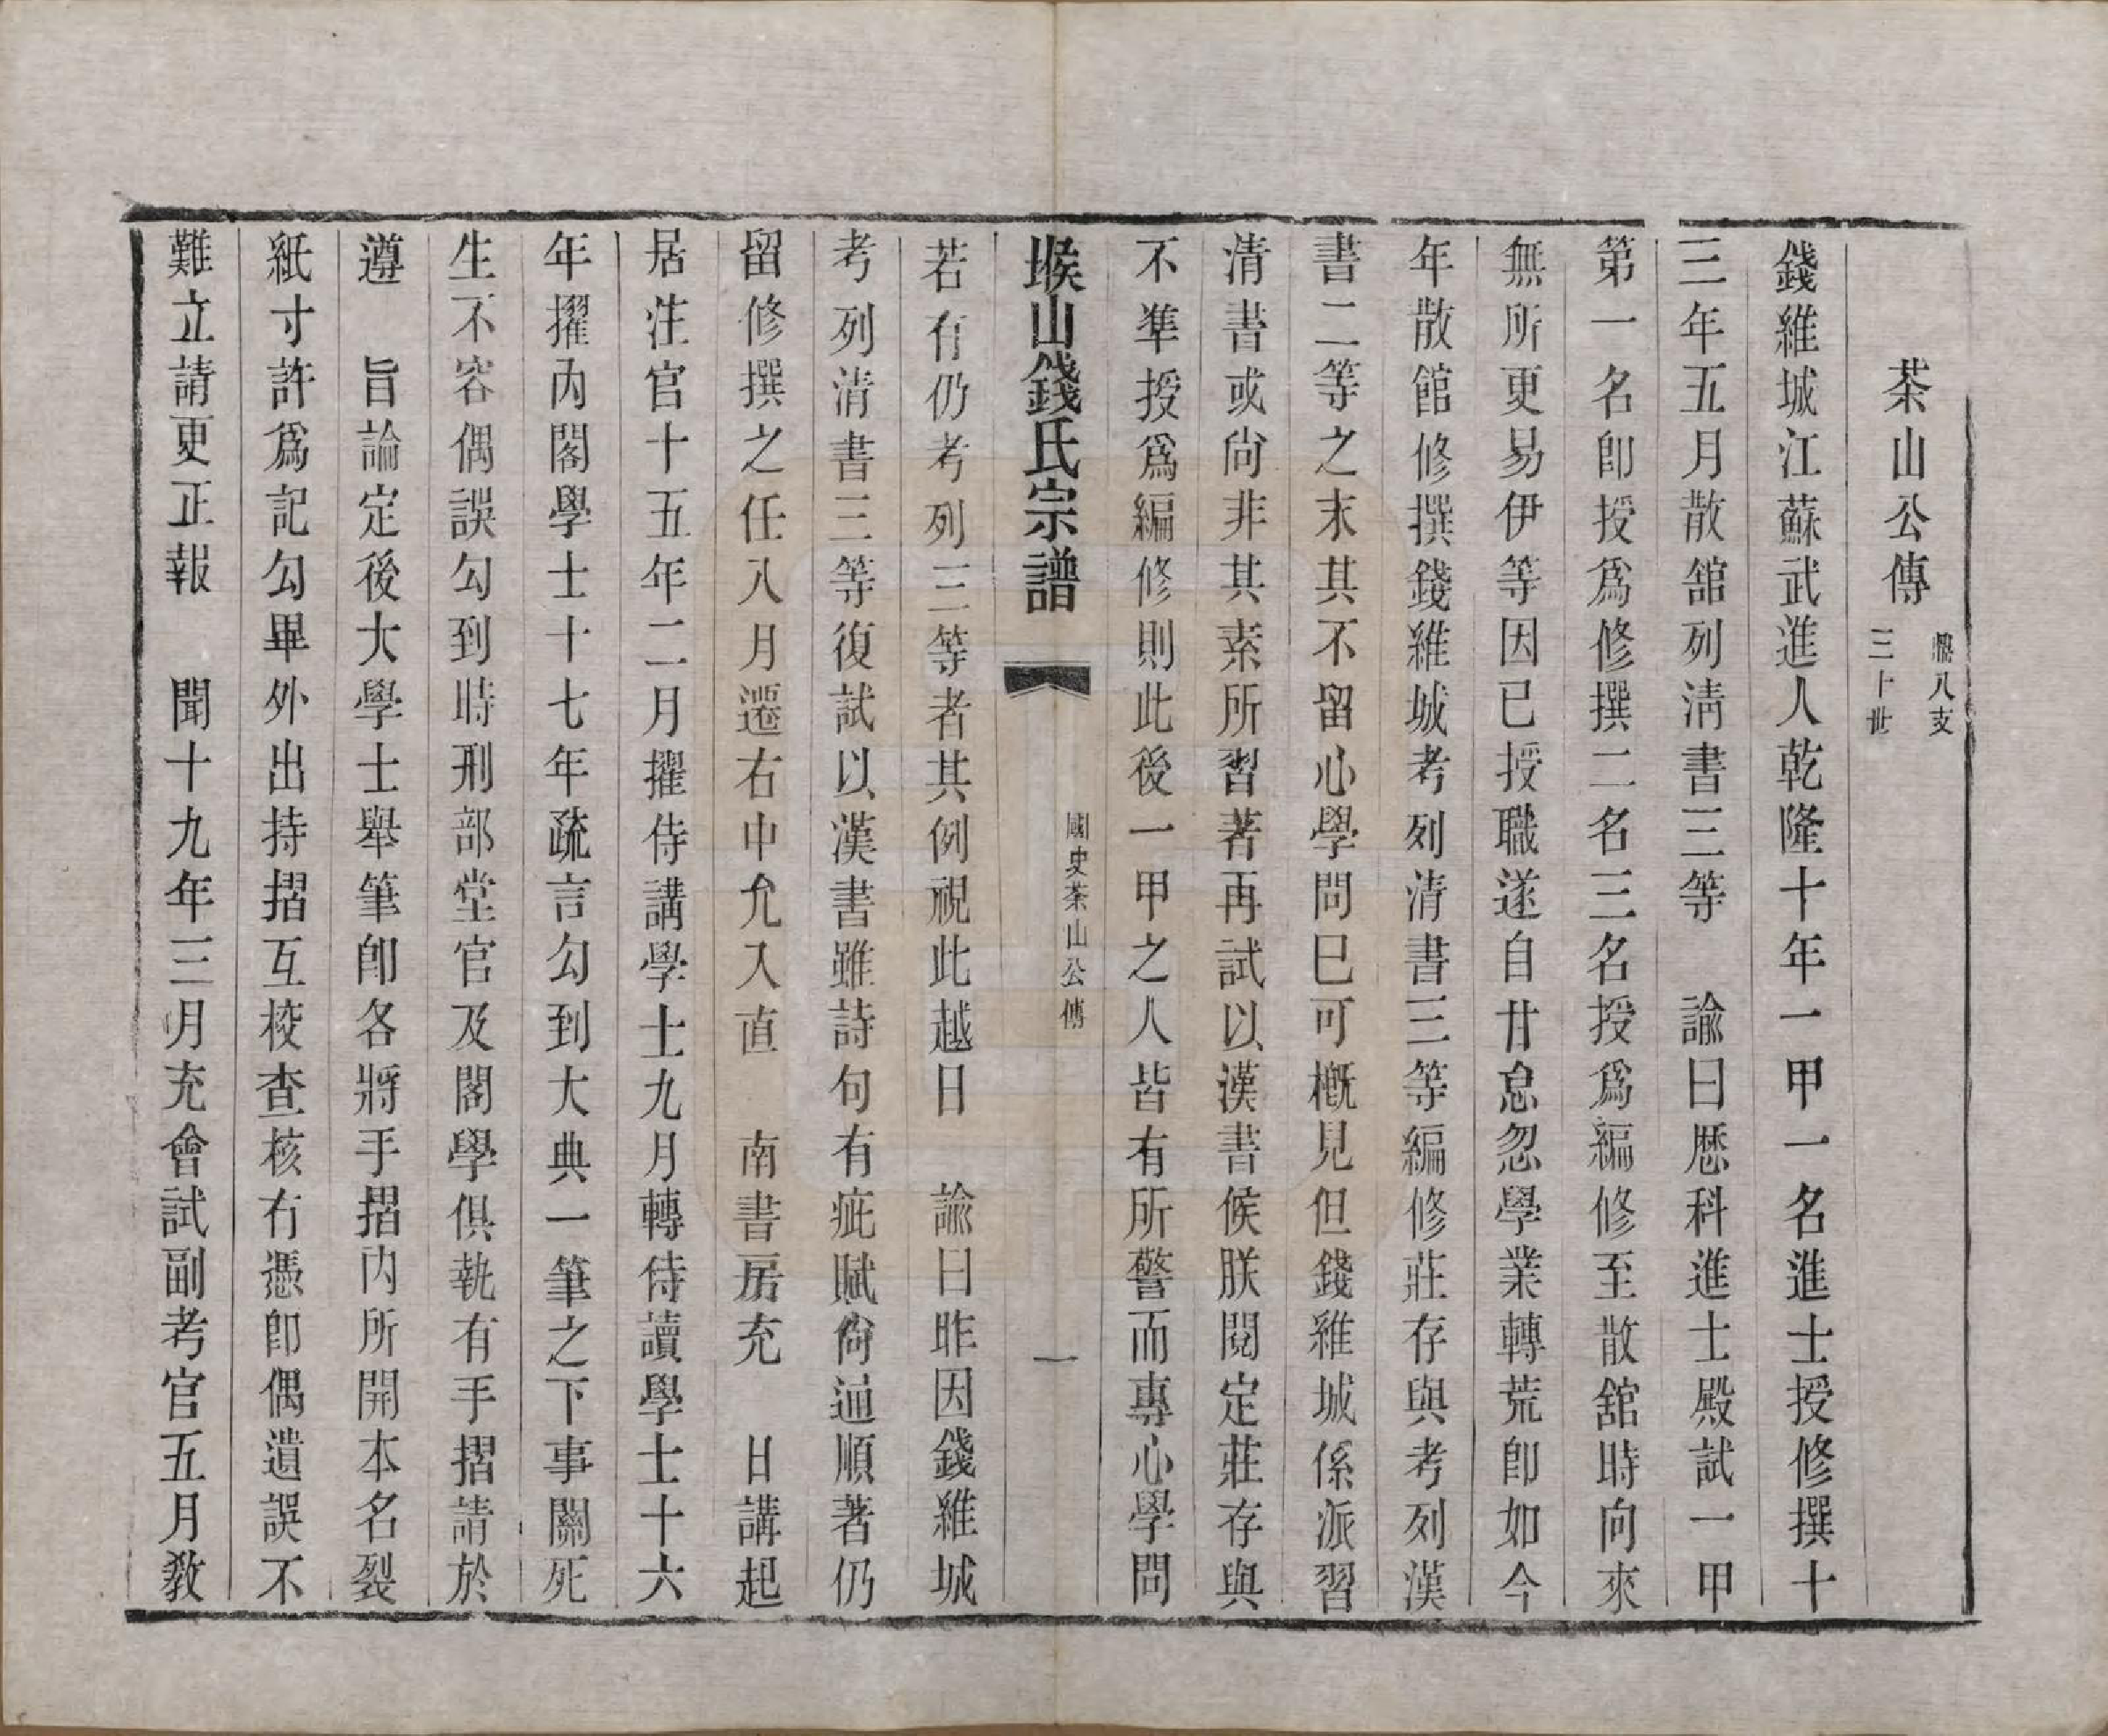 茶山公傳
鵬八支
三十世
錢維城江蘇武進人乾隆十年一甲一名進士授修撰十
三年五月散舘列淸書三等　諭曰歷科進士殿試一甲
第一名卽授爲修撰二名三名授爲編修至散舘時向來
無所更易伊等因已授職遂自甘怠忽學業轉荒卽如今
年散館修撰錢維城考列清書三等編修莊存與考列漢
書二等之末其不留心學問巳可槪見但錢維城係派習
清書或尙非其素所習著再試以漢書候朕閱定莊存與
不準授爲編修則此後一甲之人皆有所警而專心學問
堠山錢氏宗譜
國史茶山公傳
一
若有仍考列三等者其例視此越日　諭曰昨因錢維城
考列清書三等復試以漢書雖詩句有疵賦尙通順著仍
留修撰之任八月遷右中允入直　南書房充　日講起
居注官十五年二月擢侍講學士九月轉侍讀學士十六
年擢內閣學士十七年疏言勾到大典一筆之下事關死
生不容偶誤勾到時刑部堂官及閣學俱執有手摺請於
遵　旨論定後大學士舉筆卽各將手摺內所開本名裂
紙寸許爲記勾畢外出持摺互校查核有憑卽偶遺誤不
難立請更正報　聞十九年三月充會試副考官五月敎